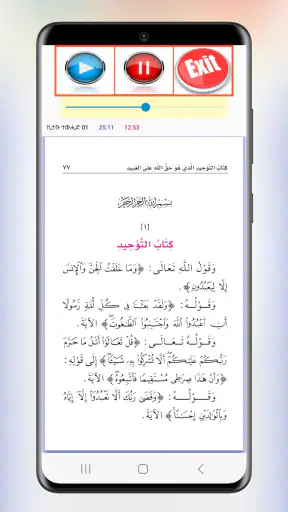 Exit
ኪታቡ ተውሒድ 01 25:11 12:53
كِتَابُ التَّوْحِيدِ الَّذِي هُوَ حَقُّ اللَّهِ عَلَى العَبِيدِ ٧٧
بسم الله الرحمن الرحيم
[١]
كِتَابُ التَّوْحِيدِ
وَقَوْلُ اللَّهِ تَعَالَى: ﴿وَمَا خَلَقْتُ الْجِنَّ وَالْإِنسَ
إِلَّا لِيَعْبُدُونِ﴾.
وَقَوْلُهُ: ﴿وَلَقَدْ بَعَثْنَا فِي كُلِّ أُمَّةٍ رَّسُولًا
أَنِ اعْبُدُوا اللَّهَ وَاجْتَنِبُوا الطَّاغُوتَ﴾ الآيَةَ.
وَقَوْلُهُ تَعَالَى: ﴿قُلْ تَعَالَوْا أَتْلُ مَا حَرَّمَ
رَبُّكُمْ عَلَيْكُمْ أَلَّا تُشْرِكُوا بِهِ شَيْئًا﴾ إِلَى قَوْلِهِ:
﴿وَأَنَّ هَذَا صِرَاطِي مُسْتَقِيمًا فَاتَّبِعُوهُ﴾ الآيَةَ.
وَقَوْلُهُ: ﴿وَقَضَى رَبُّكَ أَلَّا تَعْبُدُوا إِلَّا إِيَّاهُ
وَبِالْوَالِدَيْنِ إِحْسَانًا﴾ الآيَةَ.